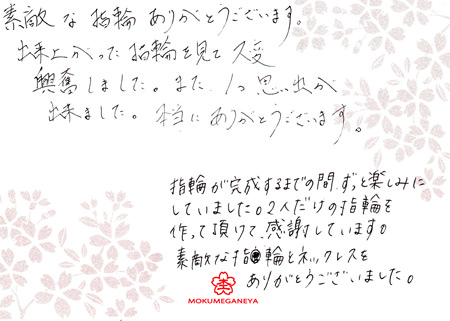 素敵な指輪ありがとうございます。
出来上がった指輪を見て大変
興奮しました。また1つ思い出が
出来ました。本当にありがとうございます。
指輪が完成するまでの間、ずっと楽しみに
していました。2人だけの指輪を
作って頂けて、感謝しています。
素敵な指輪とネックレスを
ありがとうございました。
MOKUMEGANEYA